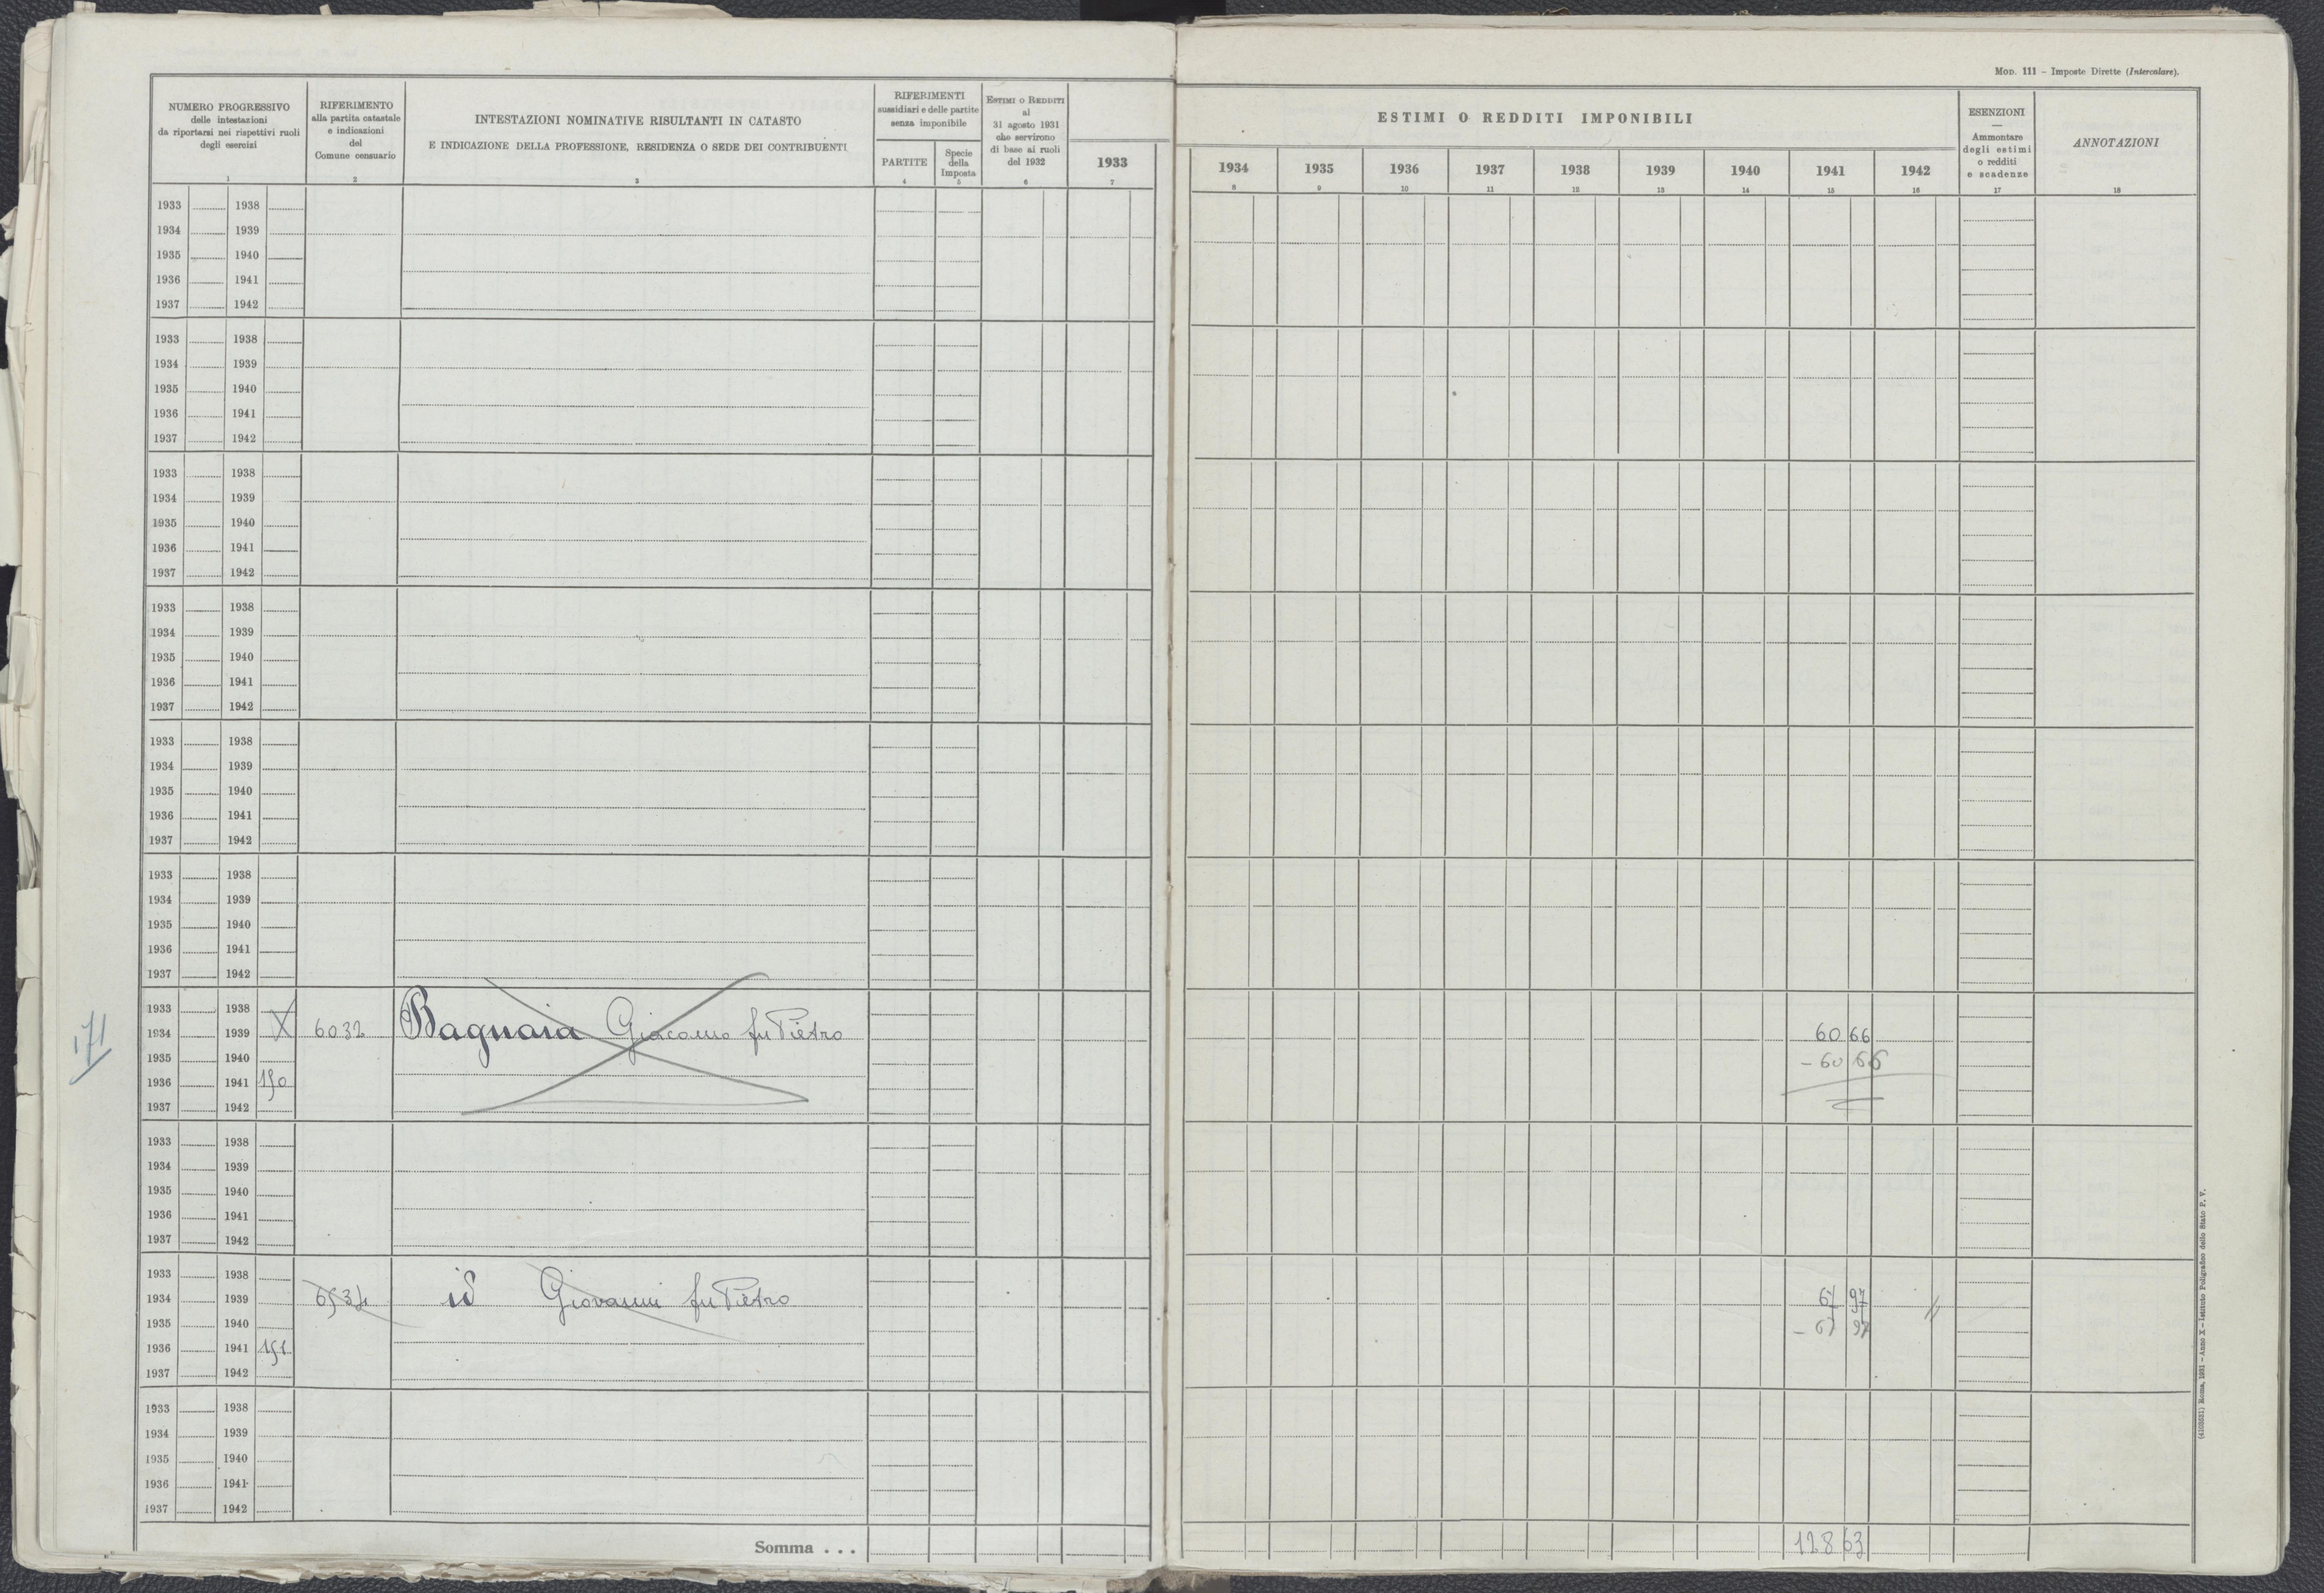 MOD. 111 – Imposte Dirette (Intercalare).
NUMERO PROGRESSIVO
delle intestazioni
da riportarsi nei rispettivi ruoli
degli esercizi
1
RIFERIMENTO
alla partita catastale
e indicazioni
del
Comune censuario
2
INTESTAZIONI NOMINATIVE RISULTANTI IN CATASTO
E INDICAZIONE DELLA PROFESSIONE, RESIDENZA O SEDE DEI CONTRIBUENTI
3
RIFERIMENTI
sussidiari e delle partite
senza imponibile
PARTITE
4
Specie
della
Imposta
5
ESTIMI O REDDITI
al
31 agosto 1931
che servirono
di base ai ruoli
del 1932
6
ESTIMI O REDDITI IMPONIBILI
1933 1934 1935 1936 1937 1938 1939 1940 1941 1942
7 8 9 10 11 12 13 14 15 16
ESENZIONI
—
Ammontare
degli estimi
o redditi
e scadenze
17
ANNOTAZIONI
18
1933 1938
1934 1939
1935 1940
1936 1941
1937 1942
1933 1938
1934 1939
1935 1940
1936 1941
1937 1942
1933 1938
1934 1939
1935 1940
1936 1941
1937 1942
1933 1938
1934 1939
1935 1940
1936 1941
1937 1942
1933 1938
1934 1939
1935 1940
1936 1941
1937 1942
1933 1938
1934 1939
1935 1940
1936 1941
1937 1942
1933 1938
171 1934 1939 X 6032 Bagnaia Giacomo fu Pietro 60 66
1935 1940 – 60 66
1936 1941 150
1937 1942
1933 1938
1934 1939
1935 1940
1936 1941
1937 1942
1933 1938
1934 1939 6534 id Giovanni fu Pietro 67 97 //
1935 1940 – 67 97
1936 1941 151
1937 1942
1933 1938
1934 1939
1935 1940
1936 1941
1937 1942
Somma . . . 128 63
(4103681) Roma, 1931 – Anno X – Istituto Poligrafico dello Stato P. V.